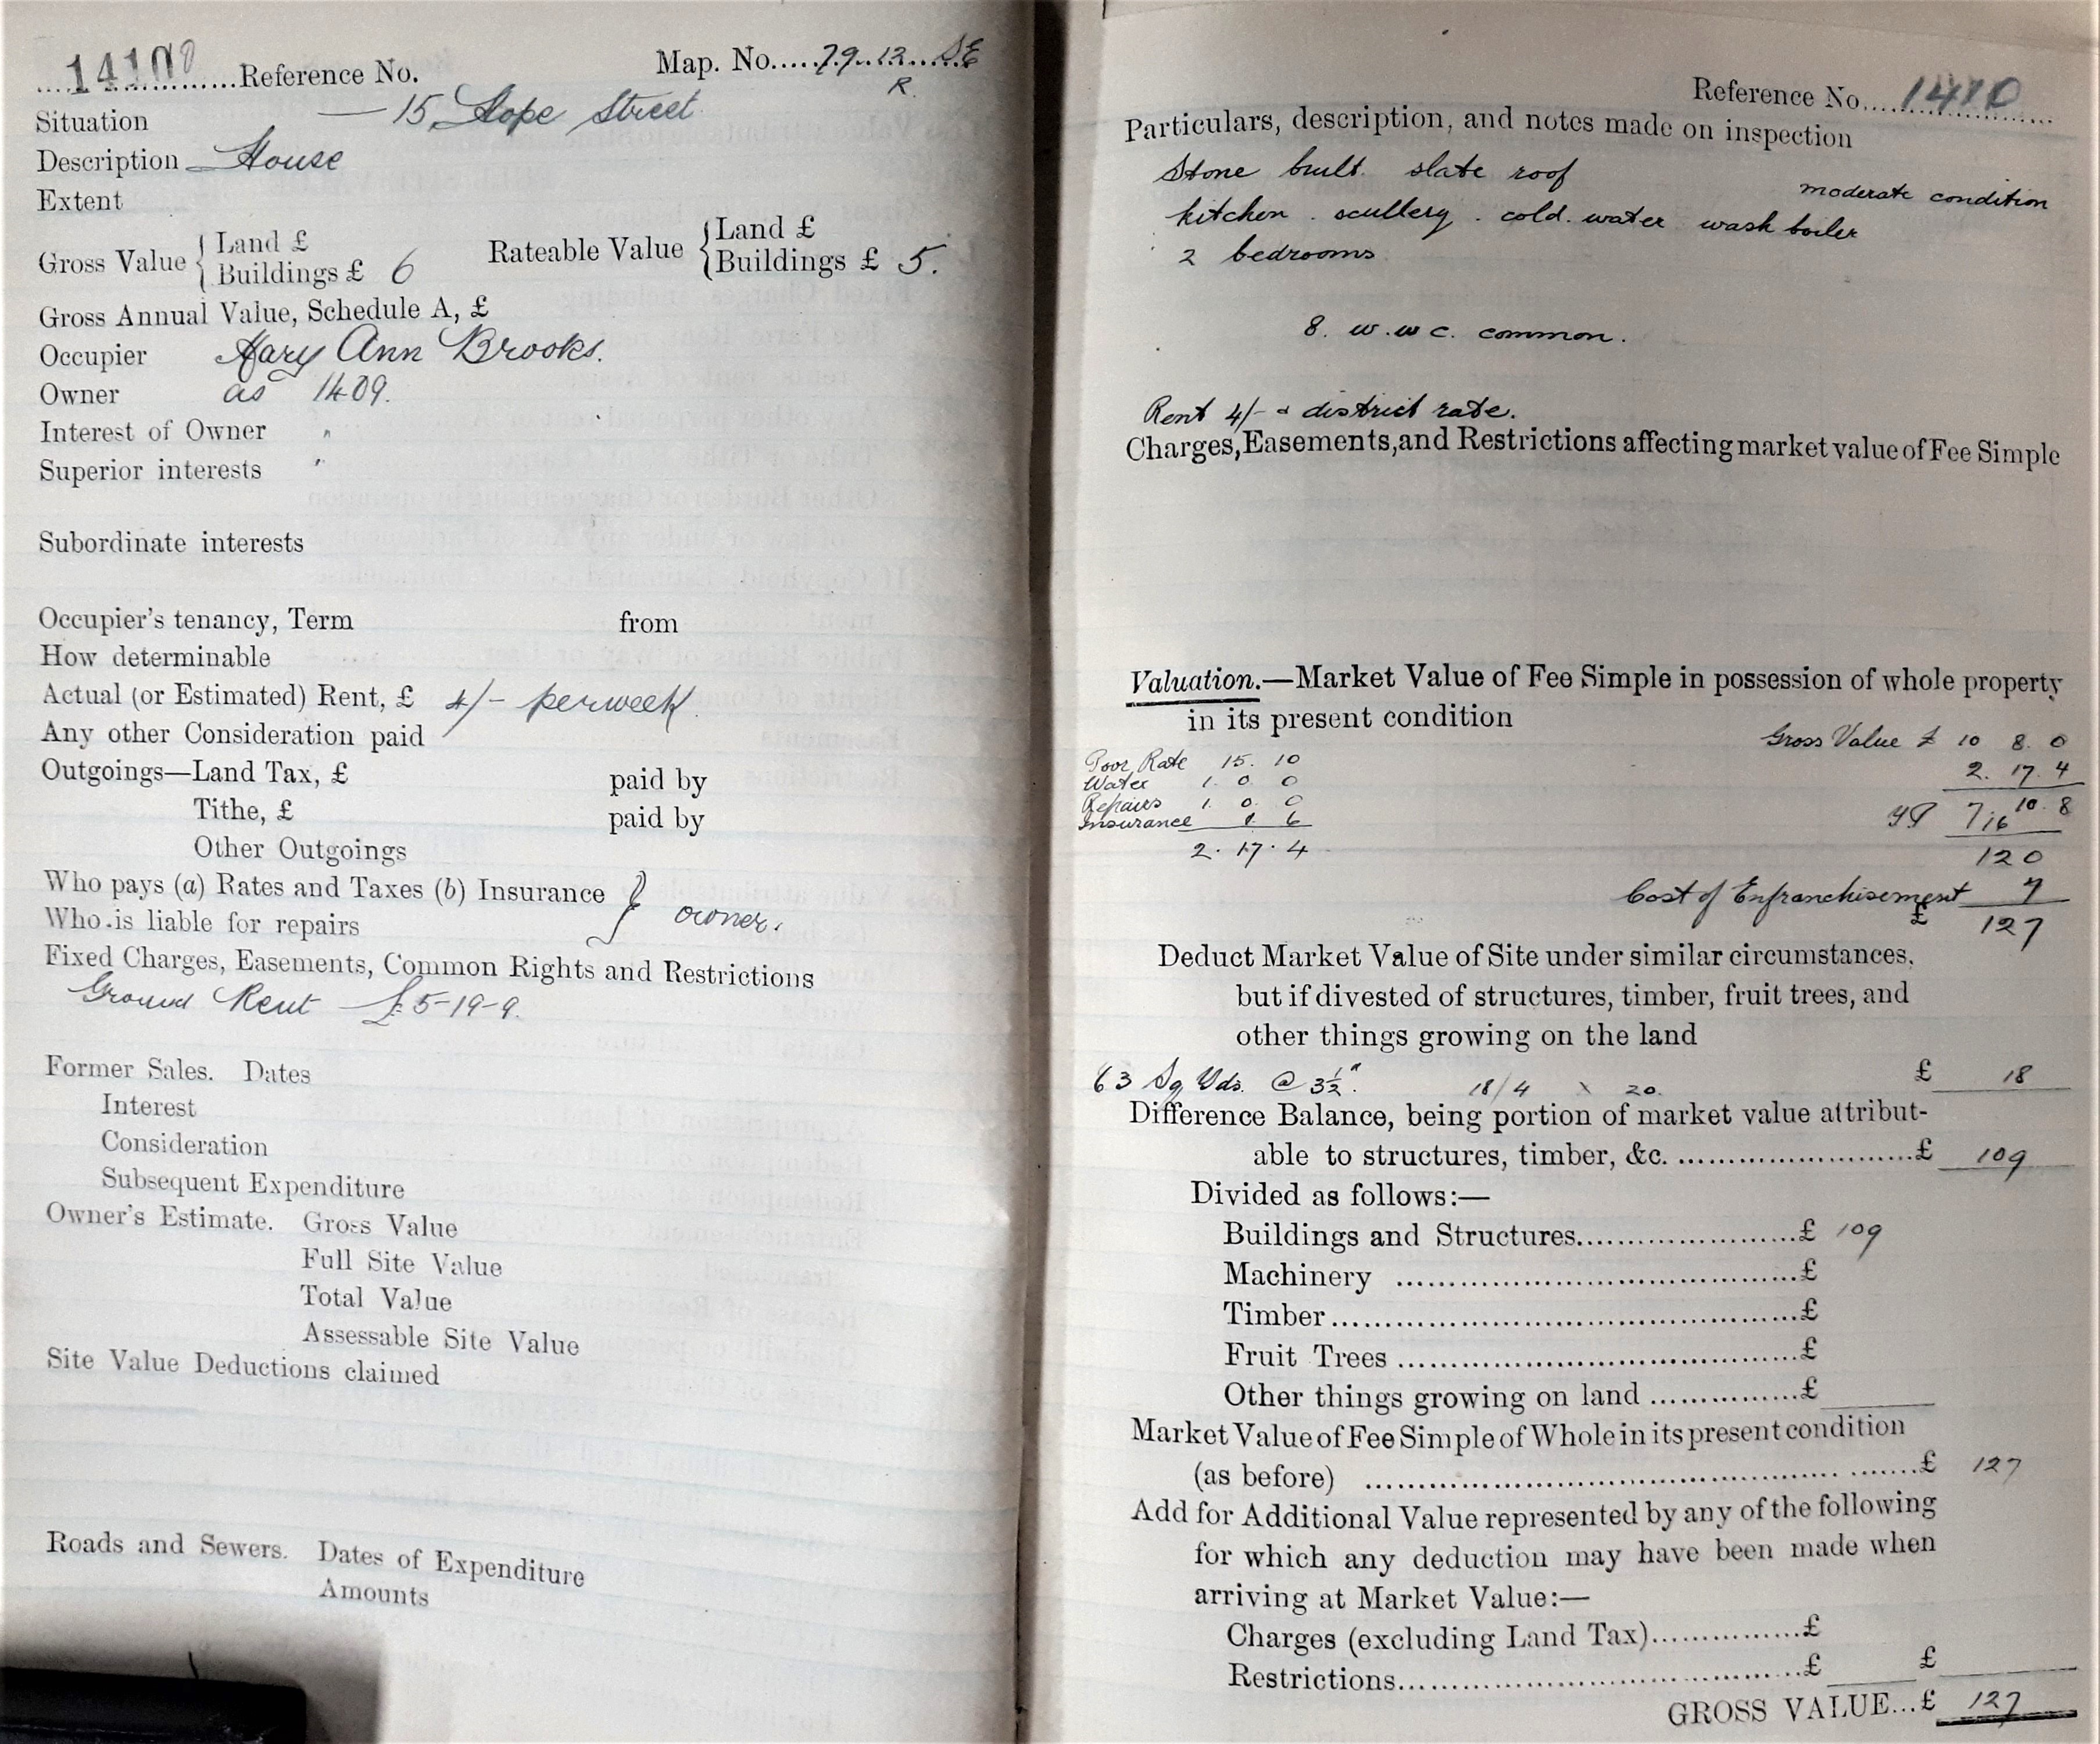 1410 Reference No. Map. No. 79.12. SE
R.
Situation — 15, Hope Street
Description House
Extent
Gross Value { Land £
Buildings £ 6
Rateable Value { Land £
Buildings £ 5.
Gross Annual Value, Schedule A, £
Occupier Mary Ann Brooks.
Owner as 1409.
Interest of Owner "
Superior interests "
Subordinate interests
Occupier's tenancy, Term from
How determinable
Actual (or Estimated) Rent, £ 4/- per week
Any other Consideration paid
Outgoings—Land Tax, £ paid by
Tithe, £ paid by
Other Outgoings
Who pays (a) Rates and Taxes (b) Insurance }
Who is liable for repairs owner.
Fixed Charges, Easements, Common Rights and Restrictions
Ground Rent £5-19-9.
Former Sales. Dates
Interest
Consideration
Subsequent Expenditure
Owner's Estimate. Gross Value
Full Site Value
Total Value
Assessable Site Value
Site Value Deductions claimed
Roads and Sewers. Dates of Expenditure
Amounts
Reference No. 1410
Particulars, description, and notes made on inspection
Stone built. slate roof
moderate condition
kitchen. scullery. cold. water wash boiler
2 bedrooms
8. w.w c. common.
Rent 4/- & district rate.
Charges, Easements, and Restrictions affecting market value of Fee Simple
Valuation.—Market Value of Fee Simple in possession of whole property
in its present condition
Gross Value £ 10 8. 0
2. 17. 4
YP 7,16 10. 8
120
Cost of Enfranchisement 7
£ 127
Poor Rate 15. 10
Water 1. 0. 0
Repairs 1. 0. 0
Insurance 1. 6
2. 17. 4
Deduct Market Value of Site under similar circumstances,
but if divested of structures, timber, fruit trees, and
other things growing on the land
63 Sq Yds. @ 3½d. 18/4 x 20. £ 18
Difference Balance, being portion of market value attribut-
able to structures, timber, &c. £ 109
Divided as follows:—
Buildings and Structures £ 109
Machinery £
Timber £
Fruit Trees £
Other things growing on land £
Market Value of Fee Simple of Whole in its present condition
(as before) £ 127
Add for Additional Value represented by any of the following
for which any deduction may have been made when
arriving at Market Value:—
Charges (excluding Land Tax) £
Restrictions £ £
GROSS VALUE...£ 127